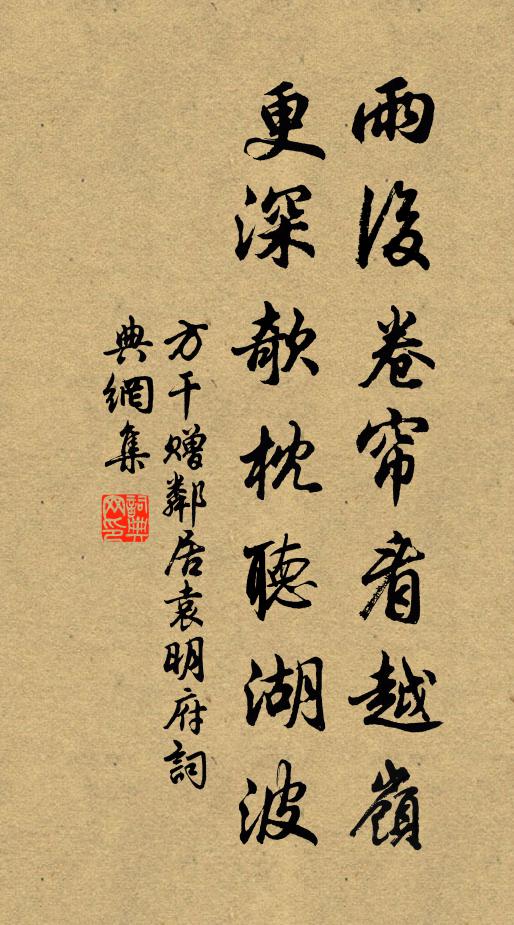 雨後卷帘看越嶺
更深欹枕聽湖波
方干贈鄰居袁明府詞
典網集
詞典網印